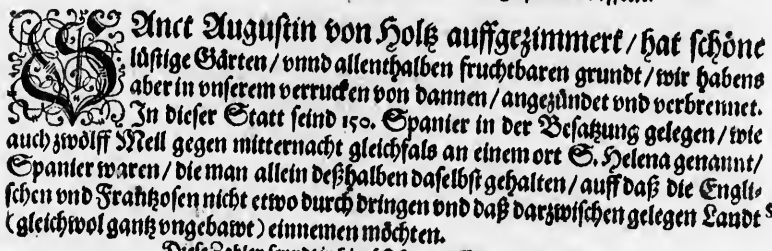 SAnct Augustin von Holtz auffgezimmert / hat schöne
lüstige Gärten / vnnd allenthalben fruchtbaren grundt / wir habens
aber in vnserem verrucken von dannen / angezündet vnd verbrennet.
In dieser Statt seind 150. Spanier in der Besatzung gelegen / wie
auch zwölff Meil gegen mitternacht gleichfals an einem ort S. Helena genannt /
Spanier waren / die man allein deßhalben daselbst gehalten / auff daß die Engli-
schen vnd Frantzosen nicht etwo durch dringen vnd daß darzwischen gelegen Landt
(gleichwol gantz vngebawt) einnemen möchten.